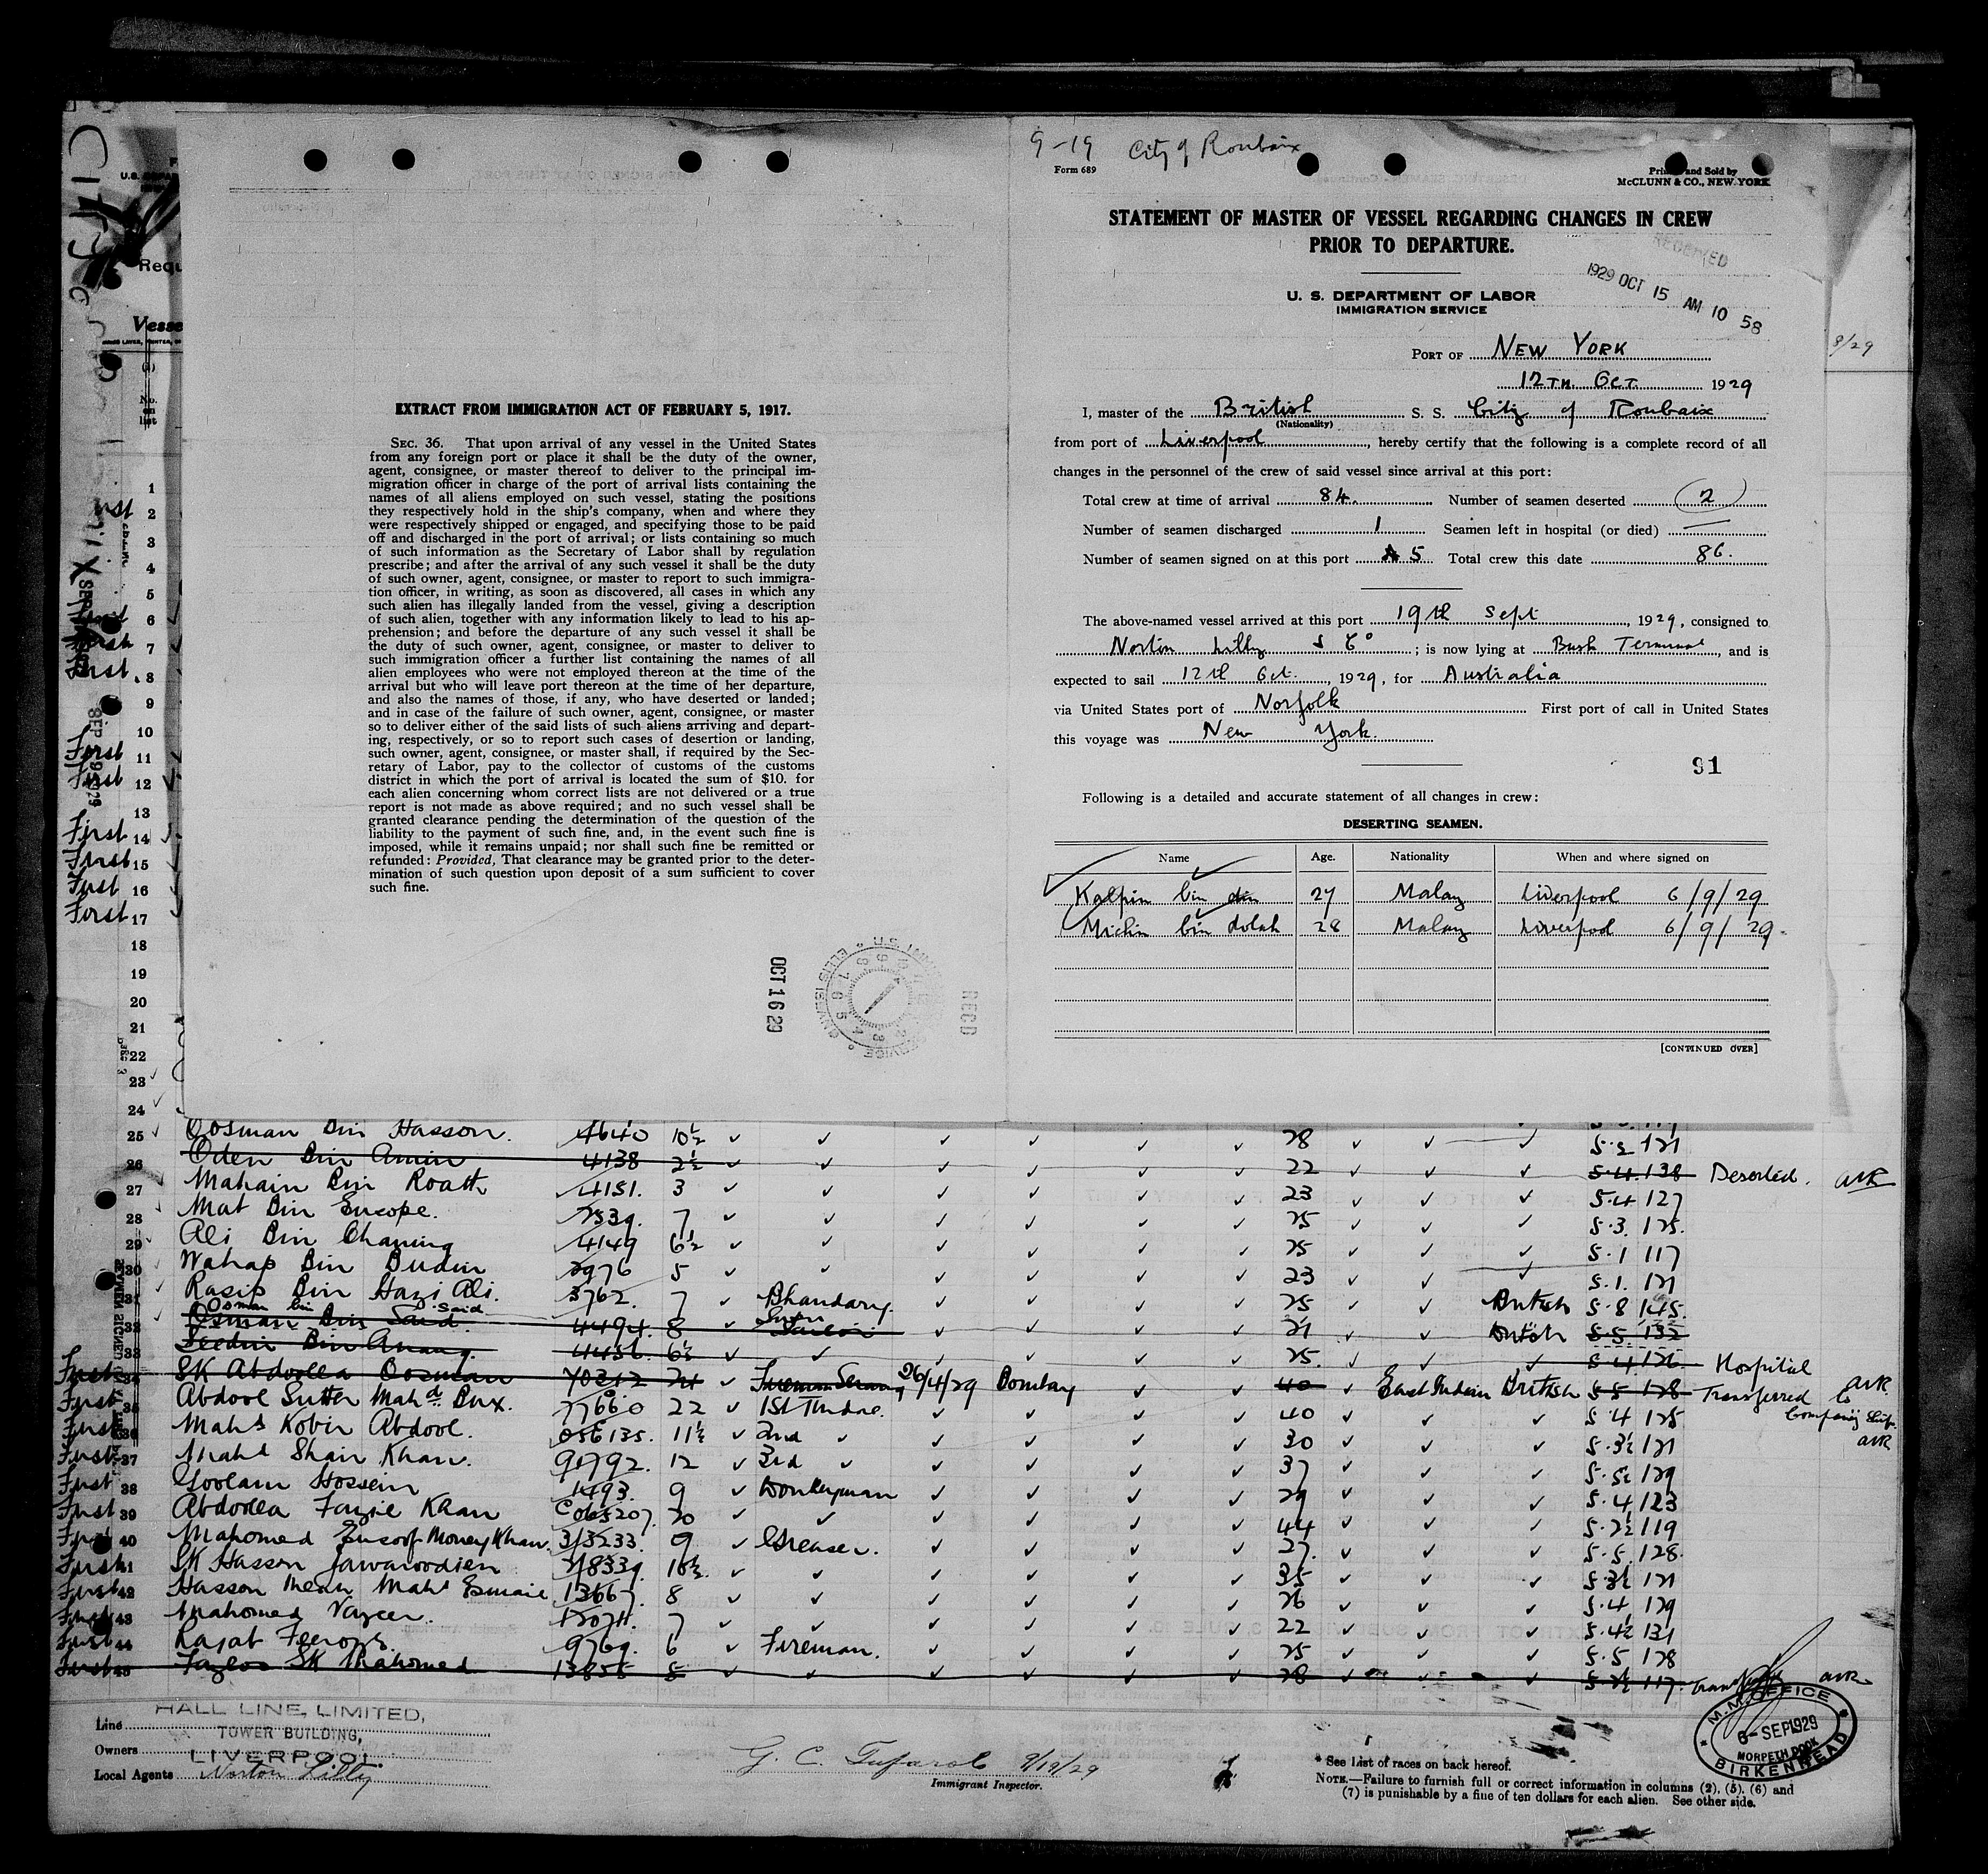 9-19 City of Roubaix
Form 689
and Sold by
McCLUNN & CO., NEW YORK
STATEMENT OF MASTER OF VESSEL REGARDING CHANGES IN CREW
PRIOR TO DEPARTURE.
RECEIVED
1929 OCT 15 AM 10 58
U. S. DEPARTMENT OF LABOR
IMMIGRATION SERVICE
PORT OF NEW YORK
12TH. OCT. 1929
I, master of the British S. S. City of Roubaix
(Nationality)
from port of Liverpool, hereby certify that the following is a complete record of all
changes in the personnel of the crew of said vessel since arrival at this port:
Total crew at time of arrival 84. Number of seamen deserted 2
Number of seamen discharged 1 Seamen left in hospital (or died) —
Number of seamen signed on at this port 5 Total crew this date 86.
The above-named vessel arrived at this port 19th Sept, 1929, consigned to
Norton Lilly & Co; is now lying at Bush Terminal, and is
expected to sail 12th Oct., 1929, for Australia
via United States port of Norfolk First port of call in United States
this voyage was New York.
91
Following is a detailed and accurate statement of all changes in crew:
DESERTING SEAMEN.
Name Age. Nationality When and where signed on
Kalpin bin din 27 Malay Liverpool 6/9/29
Michin bin dolah 28 Malay Liverpool 6/9/29
[CONTINUED OVER]
EXTRACT FROM IMMIGRATION ACT OF FEBRUARY 5, 1917.
SEC. 36. That upon arrival of any vessel in the United States
from any foreign port or place it shall be the duty of the owner,
agent, consignee, or master thereof to deliver to the principal im-
migration officer in charge of the port of arrival lists containing the
names of all aliens employed on such vessel, stating the positions
they respectively hold in the ship's company, when and where they
were respectively shipped or engaged, and specifying those to be paid
off and discharged in the port of arrival; or lists containing so much
of such information as the Secretary of Labor shall by regulation
prescribe; and after the arrival of any such vessel it shall be the duty
of such owner, agent, consignee, or master to report to such immigra-
tion officer, in writing, as soon as discovered, all cases in which any
such alien has illegally landed from the vessel, giving a description
of such alien, together with any information likely to lead to his ap-
prehension; and before the departure of any such vessel it shall be
the duty of such owner, agent, consignee, or master to deliver to
such immigration officer a further list containing the names of all
alien employees who were not employed thereon at the time of the
arrival but who will leave port thereon at the time of her departure,
and also the names of those, if any, who have deserted or landed;
and in case of the failure of such owner, agent, consignee, or master
so to deliver either of the said lists of such aliens arriving and depart-
ing, respectively, or so to report such cases of desertion or landing,
such owner, agent, consignee, or master shall, if required by the Sec-
retary of Labor, pay to the collector of customs of the customs
district in which the port of arrival is located the sum of $10. for
each alien concerning whom correct lists are not delivered or a true
report is not made as above required; and no such vessel shall be
granted clearance pending the determination of the question of the
liability to the payment of such fine, and, in the event such fine is
imposed, while it remains unpaid; nor shall such fine be remitted or
refunded: Provided, That clearance may be granted prior to the deter-
mination of such question upon deposit of a sum sufficient to cover
such fine.
OCT 16 29
RECD
Requ
Vesse
No. on list
1
2
3
4
5
6
7
8
9
10
First 11
First 12
13
First 14
First 15
First 16
First 17
18
19
20
21
22
23
24
25 Oosman Bin Hasson. 4640 10½ 28
26 Oden Bin Amin 4138 2½ 22 5.4. 138 Deserted.
27 Mahain Bin Roath 4151. 3 23 5.4 127
28 Mat Bin Eusope. 7 25 5.3. 125.
29 Ali Bin Chaning 4149 6½ 25 5.1 117
30 Wahap Bin Budin 2976 5 23 5.1. 121
31 Rasip Bin Hazi Ali. 3762. 7 Bhandary. 25 British 5.8 145.
Osman bin Said
32 Osman Bin Said 4494. 8 21 5.5 132
33 Seedin Bin Anang. 4456. 6½ 25. 5.4 126. Hospital
First 34 SK Abdoolla Oosman 70212 Fireman Serang 26/4/29 Bombay 40 East Indian British 5.5 128 Transferred to
First 35 Abdool Sutter Mahd. Bux. 77660 22 1st Tindal. 40 5.4 125
First 36 Mahd Kobir Abdool. 056135. 11½ 2nd 30 5.3½ 121
First 37 Mahd Shair Khan. 90792. 12 3rd 37 129
First 38 Goolam Hossein 1493. 9 Donkeyman 29 5.4 123
First 39 Abdoolla Fazie Khan C065207. 20 44 5.2½ 119
First 40 Mahomed Eusoof Money Khan. 3/3233. 9 Greaser. 27. 5.5. 128.
First 41 SK Hasson Jawaroodien 10½. 35 5.3½ 121
First 42 Hasson Meah Mahd Esmail 13667. 8 26 5.4 129
First 43 Mahomed Vazeer. 7 22 5.4½ 131
First 44 Rajab Feroze. 9769. 6 Fireman. 25 5.5 128
First 45 Fazloo SK Mahomed 13855 5 28 117.
Line HALL LINE, LIMITED,
TOWER BUILDING,
Owners LIVERPOOL.
Local Agents Norton Lilly
9/19/29
Immigrant Inspector.
* See List of races on back hereof.
NOTE.—Failure to furnish full or correct information in columns (2), (5), (6) and
(7) is punishable by a fine of ten dollars for each alien. See other side.
M.M. OFFICE
6-SEP 1929
MORPETH DOCK
BIRKENHEAD